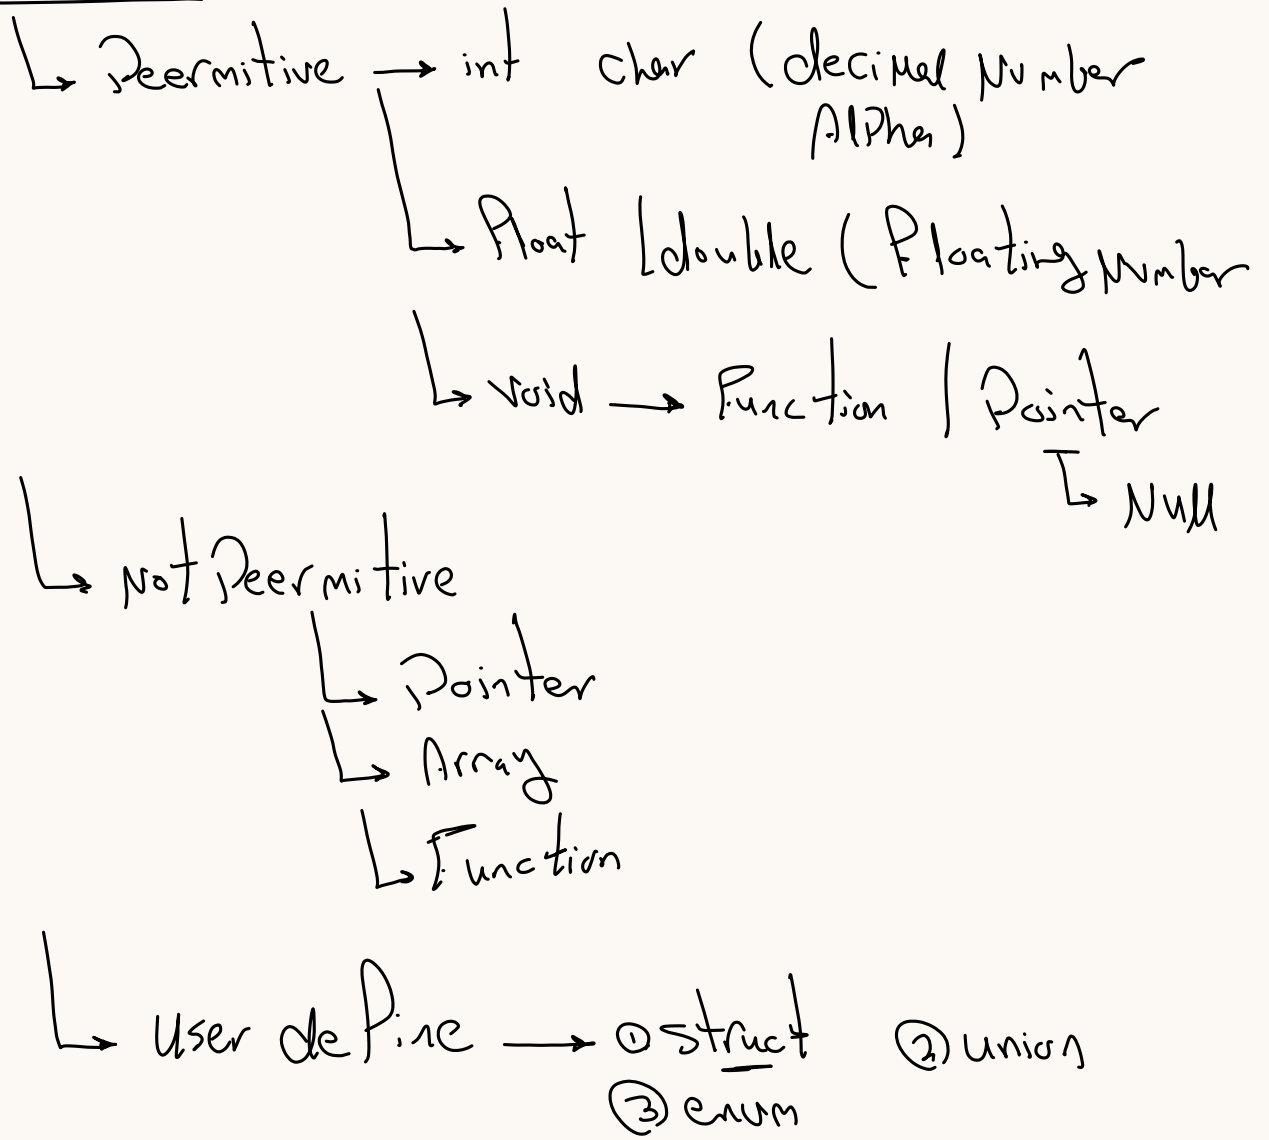 Peermitive → int char (decimal Number
Alpha)
Float | double (Floating Number
void → Function | Pointer
Null
Not Peermitive
Pointer
Array
Function
user define → ① struct ② union
③ enum